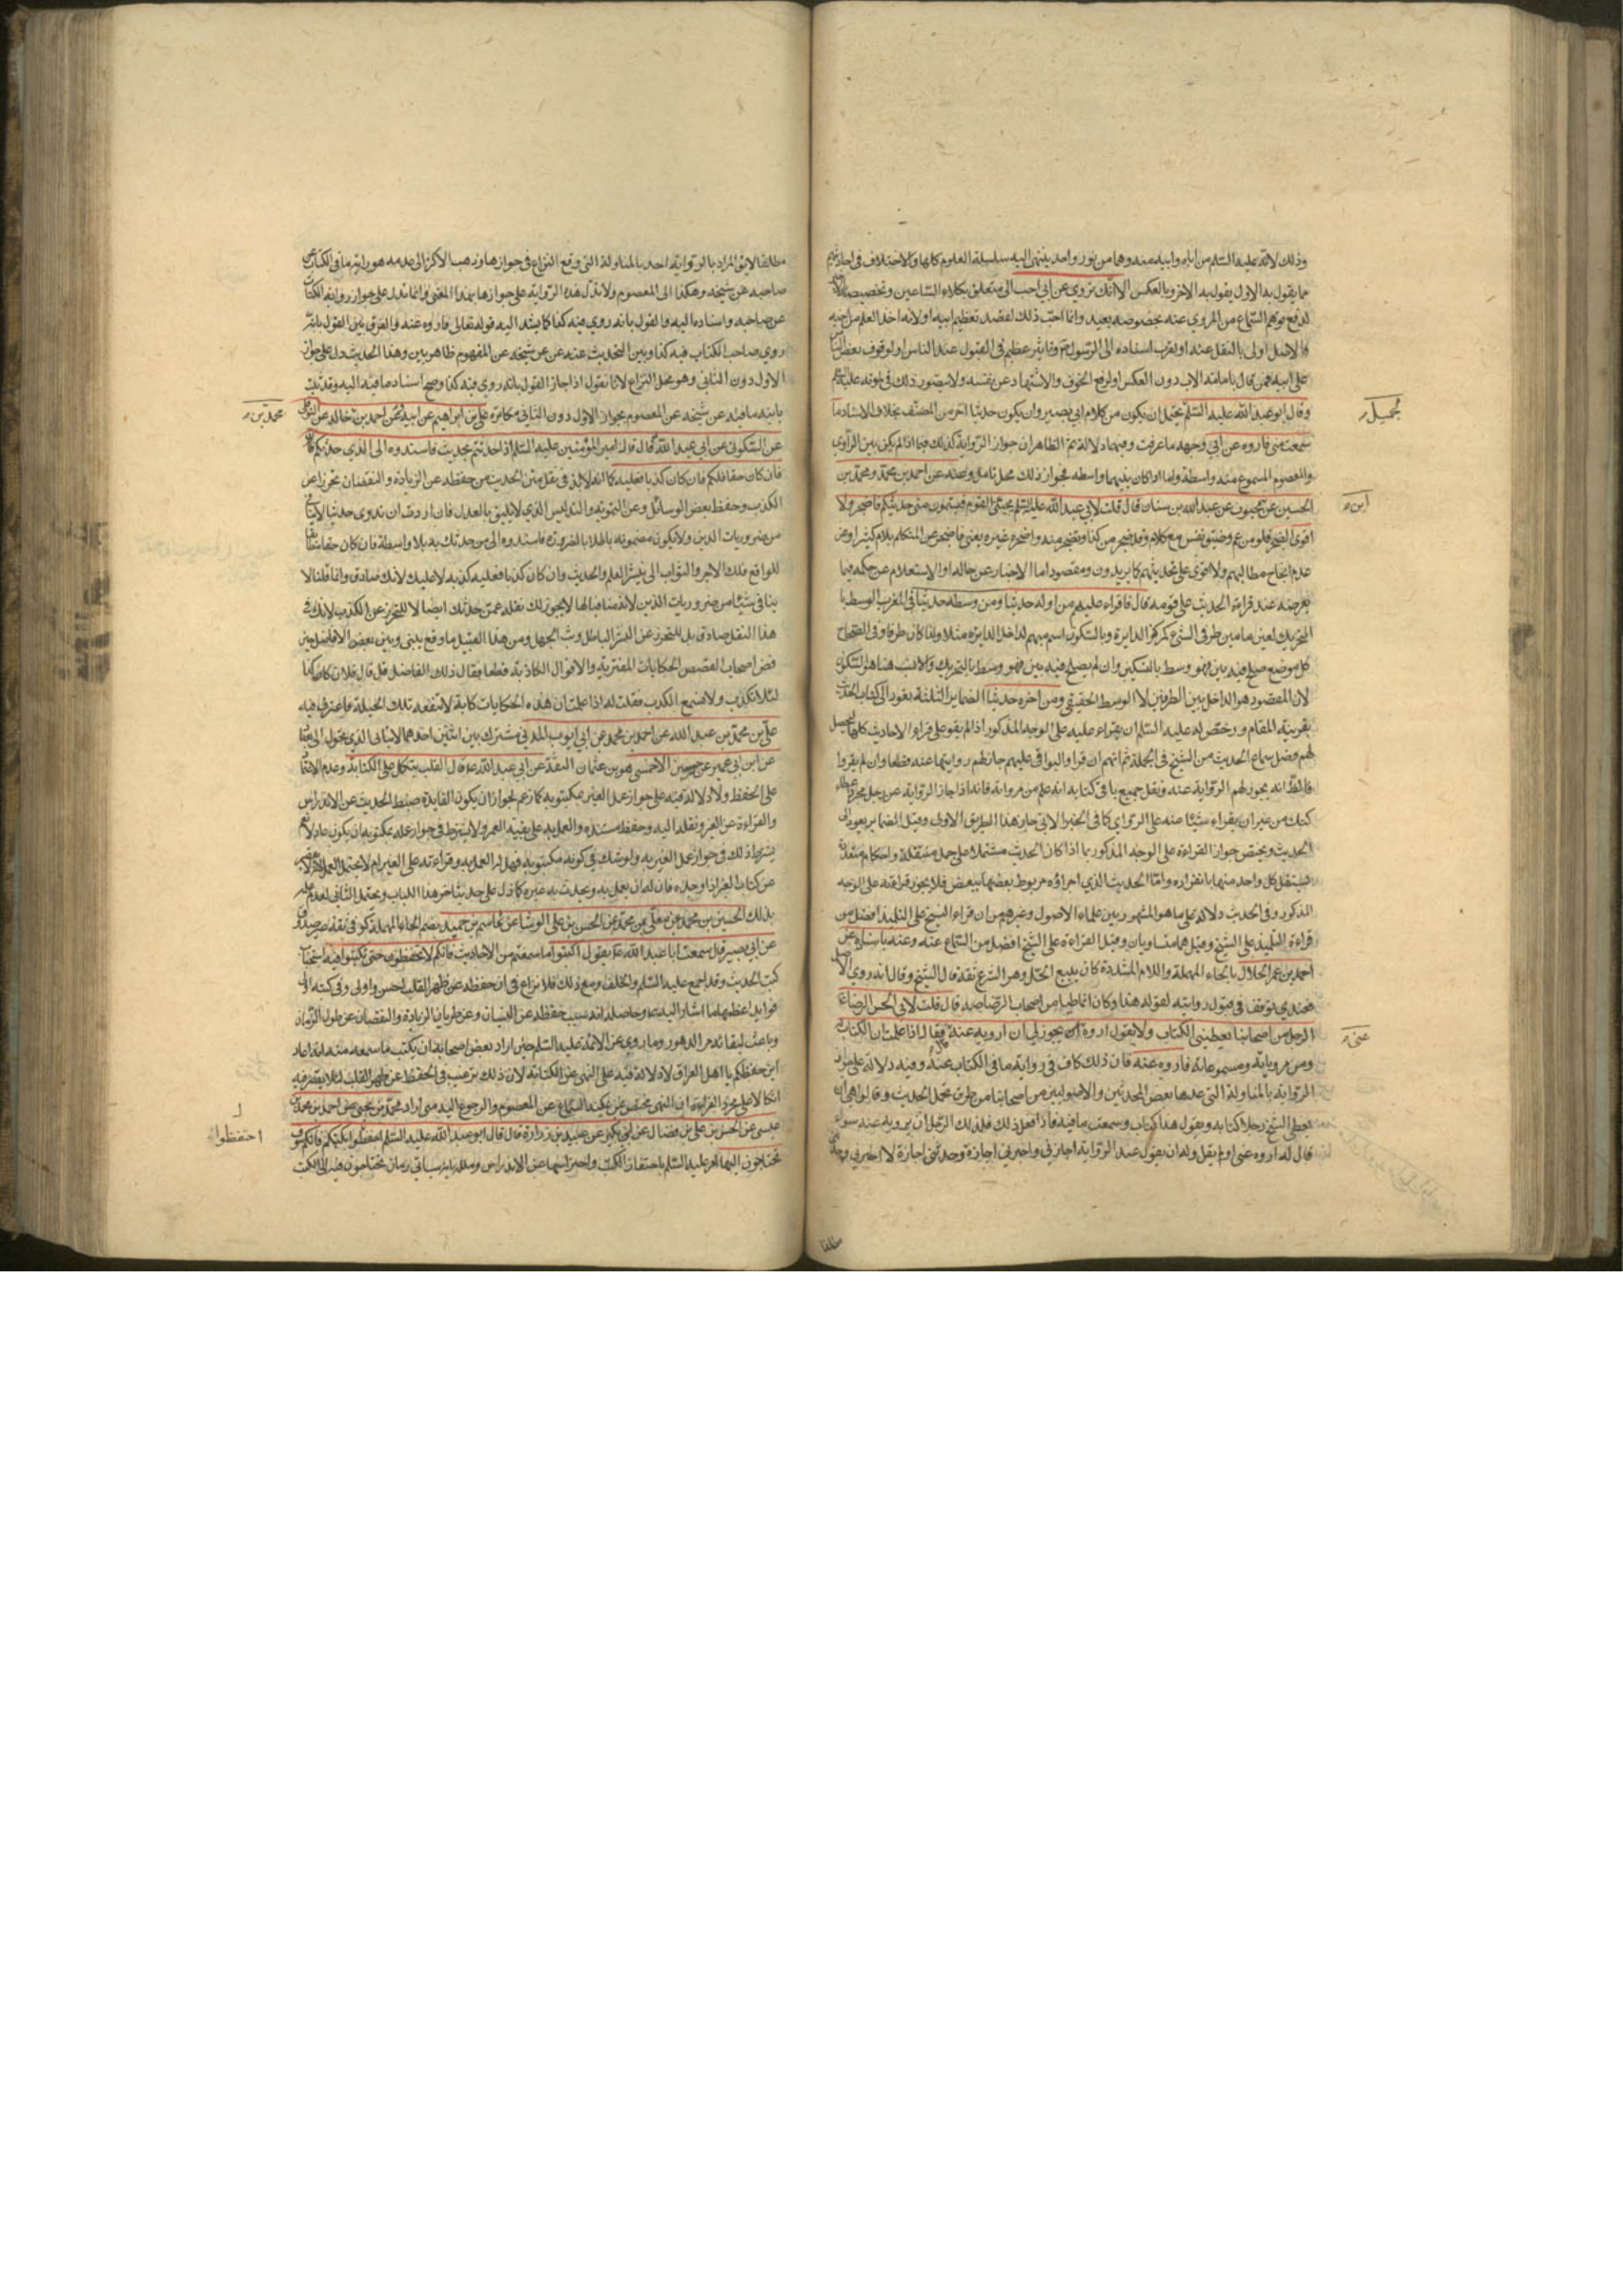 وذلك لانه عليه السلم من اباه وابيه منه وهما من نور واحد ينتهى اليه سلسلة العلوم كلها والاختلاف فى
ما يقول به الاول يقول به الاخر وبالعكس الا انك تروي عن ابي احب الى متعلق بكلا السماعين وتخصيصه
لدفع توهم السماع من المروي عنه بخصوصه بعيد وانما احب ذلك لقصد تعظيم ابيه او لانه اخذ العلم من ابيه
فالاصل اولى بالنقل عنه او لقرب اسناده الى الرسول ص وتاثير عظيم فى القبول عند الناس او لوقوف بعض
على ابيه دون العكس او لرفع الخوف والاشتهار عن نفسه
وقال ابو عبد الله عليه السلم لجميل يحتمل ان يكون من كلام ابي بصير وان يكون حديثا اخر من المصنف بحذف الاسناد ما
سمعت منى فاروه عن ابي وجهه ما عرفت وفيهما دلالة الظاهر ان جواز الرواية كذلك فيما اذا لم يكن بين الراوي
والمعصوم المسموع منه واسطة واما اذا كان بينهما واسطه فجواز ذلك محل تامل وعنه عن احمد بن محمد ومحمد بن
الحسين عن ابن محبوب عن عبد الله بن سنان قال قلت لابي عبد الله عليه السلم يجيئنى القوم فيستمعون منى حديثكم فاضجر ولا
اقوى الضجر قلق من غم وضيق نفس مع كلام وقد ضجر من كذا وتضجر منه واضجره غيره
عدم انجاح مطالبهم ولا اقوى على تحديثهم كما يريدون ومقصوده اما الاخبار عن حاله او الاستعلام عن حكمه فيما
يعرضه عند قراءة الحديث على قومه قال فاقراء عليهم من اوله حديثا ومن وسطه حديثا فى المغرب الوسط با
لتحريك لعين ما بين طرفى الشئ كمركز الدايرة وبالسكون اسم مبهم لداخل الدايره مثلا ولذا كان ظرفا وفى الصحاح
كل موضع صلح فيه بين فهو وسط بالتسكين وان لم يصلح فيه بين فهو وسط بالتحريك والانسب هنا هو السكون
لان المقصود هو الداخل بين الطرفين لا الوسط الحقيقى ومن اخره حديثا الضماير الثلثة يعود الى كتاب الحديث
بقرينة المقام ورخص له عليه السلم ان يقراء عليه على الوجه المذكور اذا لم يقو على قراءة الاحاديث كلها
لهم فضل سماع الحديث من الشيخ فى الجملة ثم انهم ان قراوا البواقى عليهم جاز لهم روايتها عنه قطعا وان لم يقروا
فالظ انه يجوز لهم الرواية عنه ونقل جميع ما فى كتابه انه علم من مروياته فانه اذا جاز الرواية عن رجل
كتابه من غير ان يقراء شيئا منه على الراوي كما فى الخبر الاتى جاز هذا الطريق الاولى وقيل الضماير يعود الى
الحديث ويختص جواز القراءة على الوجه المذكور بما اذا كان الحديث مشتملا على جمل مستقلة واحكام
يستقل كل واحد منها بانفراده واما الحديث الذي اجزاؤه مربوط بعضها ببعض فلا يجوز قراءته على الوجه
المذكور وفى الحديث دلالة على ما هو المشهور بين علماء الاصول وغيرهم من ان قراءة الشيخ على التلميذ افضل من
قراءة التلميذ على الشيخ وقيل هما متساويان وقيل القراءة على الشيخ افضل من السماع عنه وعنه باسناده عن
احمد بن عمر الحلال بالحاء المهملة واللام المشددة كان يبيع الحل وهو الشيرج ثقة قال الشيخ وقال انه روي
فعندي توقف فى قبول روايته لقوله هذا وكان انماطيا من اصحاب الرضا صه قال قلت لابي الحسن الرضا ع
الرجل من اصحابنا يعطينى الكتاب ولا يقول اروه عنى يجوز لي ان ارويه عنه قال فقال اذا علمت ان الكتاب
ومن مروياته ومسموعاته فاروه عنه فان ذلك كاف فى رواية ما فى الكتاب عنه وفيه دلالة على جواز
الرواية بالمناولة التى عدها بعض المحدثين والاصوليين من اصحابنا من طرق تحمل الحديث وقالوا هى ان
يعطى الشيخ رجلا كتابه ويقول هذا كتابي وسمعت ما فيه فاذا فعل ذلك فلذلك الرجل ان يرويه عنه سواء
قال له اروه عنى او لم يقل وله ان يقول عند الرواية اجازني واخبرني اجازة وحدثني اجازة لا اخبرني
جميل
ابن
عنى
مطلقا
مطلقا لا يق المراد بالرواية احد بالمناولة التى وقع النزاع فى جوازها وذهب الاكثر الى عدمه هو رواية ما فى الكتاب عن
صاحبه عن شيخه وهكذا الى المعصوم ولا تدل هذه الرواية على جوازها بهذا المعنى وانما تدل على جواز رواية الكتاب
عن صاحبه واسناده اليه والقول بانه روي فيه كذا كما يشد اليه قوله تعالى فاروه عنه والفرق بين القول بانه
روي صاحب الكتاب فيه كذا وبين التحديث عنه عن شيخه عن المفهوم ظاهر بين وهذا الحديث دل على جواز
الاول دون الثانى وهو محل النزاع لانا نقول اذا جاز القول بانه روي فيه كذا وصح اسناد ما فيه اليه وقد ثبت
بانه ما فيه عن شيخه عن المعصوم بجواز الاول دون الثانى مكابرة على بن ابراهيم عن ابيه وعن احمد بن محمد بن خالد عن النوفلى
عن السكونى عن ابي عبد الله ع قال قال امير المؤمنين عليه السلم اذا حدثتم بحديث فاسندوه الى الذي حدثكم
فان كان حقا فلكم وان كان كذبا فعليه كما انه لابد فى نقل متن الحديث من حفظه عن الزيادة والنقصان تحرزا عن
الكذب وحفظ بعض الوسائل وعن التمويه والتدليس الذي لا يليق بالعدل فان اردت ان تروى حديثا
من ضروريات الدين ولا يكون مضمونه باطلا بالضرورة فاسندوه الى من حدثك به بلا واسطة فان كان حقا
للواقع فلك الاجر والثواب الى بنشر العلم والحديث وان كان كذبا فعليه كذبه لا عليك لانك صادق وانما قلنا لا
ينافى شيئا من ضروريات الدين لانه منافيا لها لا يجوز لك نقله عمن حدثك ايضا لا للتحرز عن الكذب لانك فى
هذا النقل صادق بل للتحرز عن نشر الباطل وبث الجهل ومن هذا القبيل ما وقع بينى وبين بعض الافاضل من
قص اصحاب القصص الحكايات المفترية والاقوال الكاذبة قطعا فقال ذلك الفاضل قل قال فلان كان كذا
لئلا تكذب ولا تسمع الكذب فقلت له اذا علمت ان هذه الحكايات كاذبة لا تنفعه تلك الحيلة فاعترف فيه
على بن محمد بن عبد الله عن احمد بن محمد عن ابي ايوب المدني مشترك بين اثنين احدهما الانباري الذي تحول الى بغداد
عن ابن ابي عمير عن حسين الاحمسى هو بن عثمان الثقة عن ابي عبد الله ع قال القلب يتكل على الكتابة وعدم
على الحفظ ولا دلالة فيه على جواز عمل الغير بمكتوبه كما زعم لجواز ان يكون الفايدة ضبط الحديث عن الاندراس
والقراءة عن الغير ونقله اليه وحفظ سنده والعمل به على بقية العمر ولا يشترط فى جواز عمله بمكتوبه ان يكون عادلا
يشترط ذلك فى جواز عمل الغير به ولو شك فى كونه مكتوبه فهل له العمل به وقراءته على الغير ام لا
من كتاب الغير اذا وجده فان له ان يعمل به ويحدث به غيره كما دل على حديثا اخر هذا الباب ويحتمل الثانى لعدم
بذلك الحسين بن محمد عن معلى بن محمد عن الحسن بن على الوشا عن عاصم بن حميد بضم الحاء المهملة كوفى ثقة
عن ابي بصير قال سمعت ابا عبد الله ع يقول اكتبوا ما سمعتم من الاحاديث فانكم لا تحفظون حتى تكتبوا فيه استحباب
كتب الحديث وقد اجمع عليه السلف والخلف ومع ذلك فلا نزاع فى ان حفظه عن ظهر القلب احسن واولى وفى كتبه
فوايد اعظمها ما اشار اليه ع وحاصله انه سبب حفظه عن النسيان وعن طريان الزيادة والنقصان عن طول الزمان
وباعث لبقائه مر الدهور وما روي عن الائمة عليه السلم حين اراد بعض اصحابه ان يكتب ما سمعه منه
اين حفظكم يا اهل العراق لا دلالة فيه على النهى عن الكتابة لان ذلك ترغيب فى الحفظ عن ظهر القلب لئلا يقصر فيه
اتكالا على مجرد القراءة او النهى مختص بمن يمكنه السماع عن المعصوم والرجوع اليه متى اراد محمد بن يحيى عن احمد بن محمد بن
عيسى عن الحسن بن على بن فضال عن ابن بكير عن عبيد بن زرارة قال قال ابو عبد الله عليه السلم احتفظوا بكتبكم فانكم سوف
تحتاجون اليها امر عليه السلم باحتفاظ الكتب واحرازها عن الاندراس وعلله بانه سياتى زمان تحتاجون فيه الى الكتب
محمد بن
احتفظوا